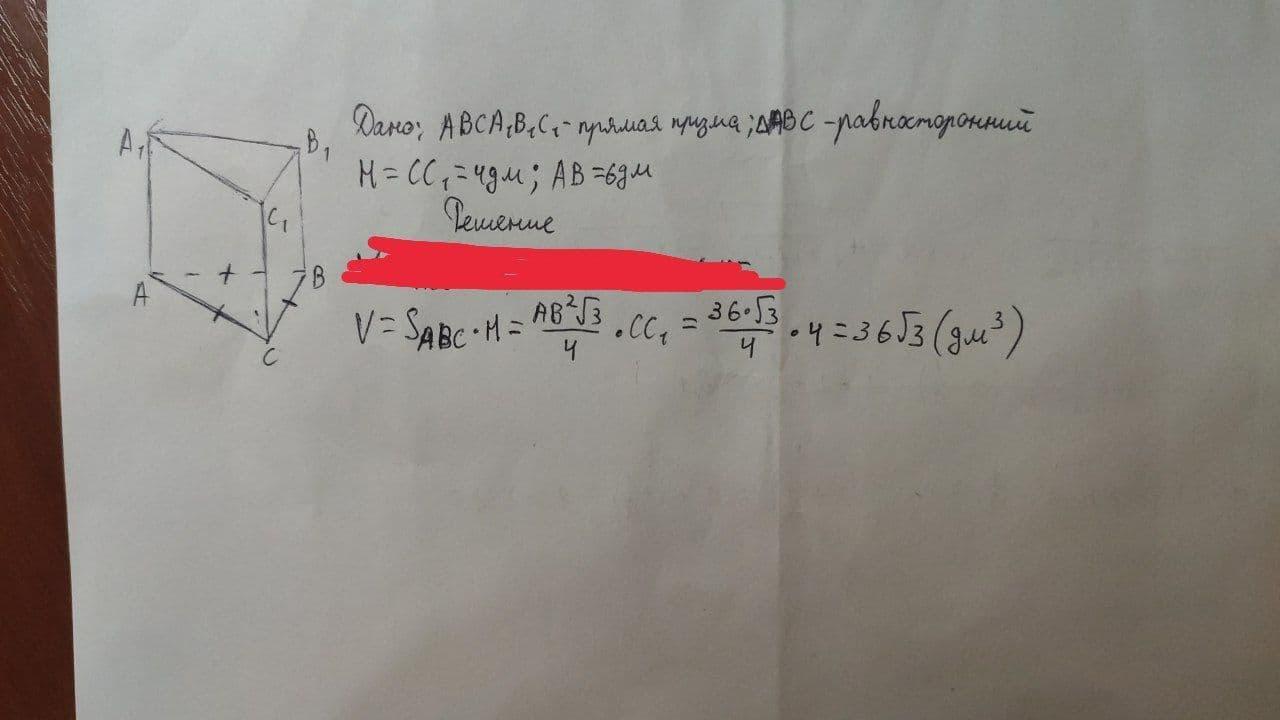 Дано: ABCA₁B₁C₁ - прямая призма; ΔABC - равносторонний
H = CC₁ = 4дм; AB = 6дм
Решение
V = S_ABC · H = AB²√3/4 · CC₁ = 36·√3/4 · 4 = 36√3 (дм³)
A₁
B₁
C₁
A
B
C